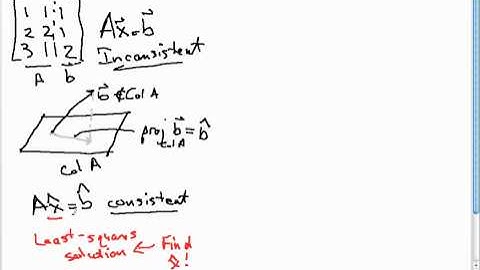 1 1 1
2 2 1
3 1 2
A b⃗
Ax⃗ = b⃗
Inconsistent
b⃗ ∉ Col A
proj_{Col A} b⃗ = b̂
Col A
Ax̂ = b̂ consistent
Least-squares
solution ← Find
x̂!